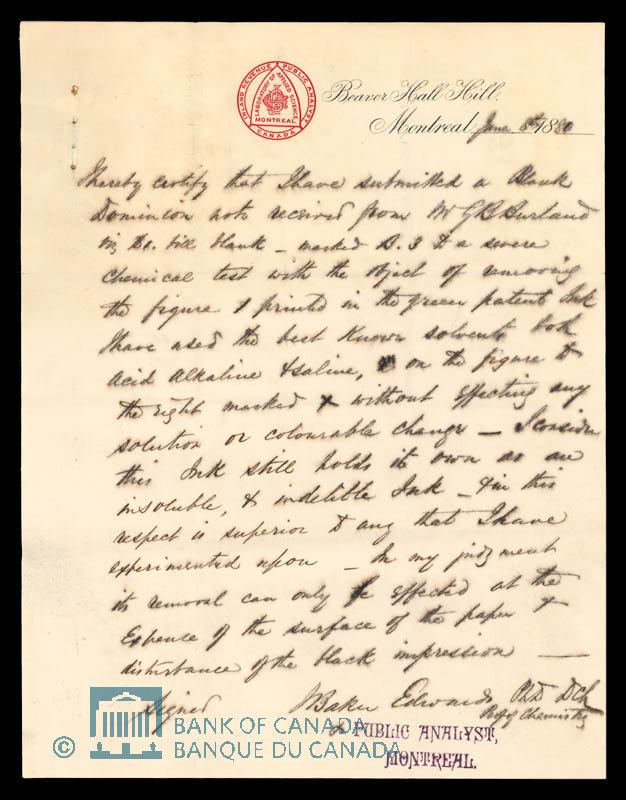 INLAND REVENUE PUBLIC ANALYST
CANADA
LABORATORY OF APPLIED SCIENCE
MONTREAL
Beaver Hall Hill.
Montreal June 8th 1880
I hereby certify that I have submitted a Blank
Dominion note received from Mr G B Burland
viz Dn. bill blank _ marked B. 3 to a severe
chemical test with the object of removing
the figure 1 printed in the green patent Ink
I have used the best known solvents both
acid alkaline & saline, on the figure to
the right marked x without effecting any
solution or colourable change _ I consider
this Ink still holds its own as an
insoluble, & indelible Ink _ & in this
respect is superior to any that I have
experimented upon _ In my judgment
its removal can only be effected at the
Expense of the surface of the paper &
disturbance of the black impression _
Signed J Baker Edwards PhD DCL
Prof of Chemistry
& PUBLIC ANALYST,
MONTREAL.
© BANK OF CANADA
BANQUE DU CANADA